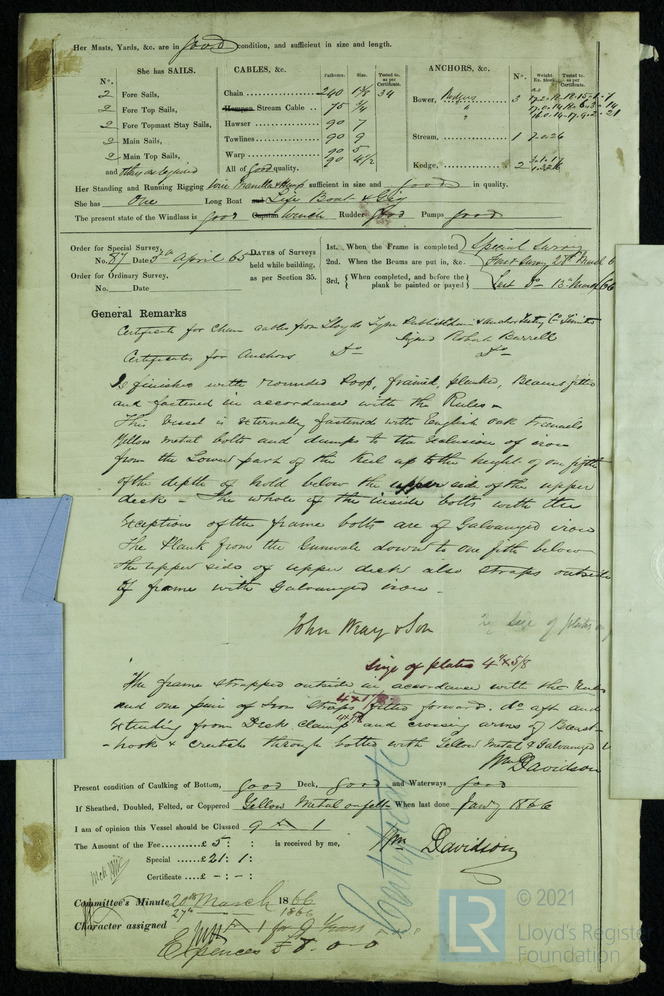 Her Masts, Yards, &c. are in good condition, and sufficient in size and length.
She has SAILS.
N°.
2 Fore Sails,
2 Fore Top Sails,
2 Fore Topmast Stay Sails,
2 Main Sails,
2 Main Top Sails,
and others as required
CABLES, &c. Fathoms. Size. Tested to as per Certificate.
Chain 240 34
Hempen Stream Cable 75 3/4
Hawser 90 7
Towlines 90 9
Warp 90 5
90 4 1/2
All of Good quality.
ANCHORS, &c. N°. Weight Ex. Stock Tested to as per Certificate.
Bower, 3
Stream, 1 7.0.26
Kedge, 2
Her Standing and Running Rigging Wire Manilla & Hemp sufficient in size and good in quality.
She has One Long Boat and Life Boat & Gig
The present state of the Windlass is good Capstan Winch Rudder Good Pumps good
Order for Special Survey,
No. 87 Date 5th April 65
Order for Ordinary Survey,
No. Date
DATES of Surveys held while building, as per Section 35.
1st. When the Frame is completed Special Survey
2nd. When the Beams are put in, &c. First Survey March 6
3rd, { When completed, and before the plank be painted or payed } Last Do 13th March/66
General Remarks
Certificate for Chain cables from Lloyds Tyne Public Chain & Anchor Co Limited
Signed Robert
Certificates for Anchors Do Do
Is finished with rounded Poop, framed, planked, Beams fitted
and fastened in accordance with the Rules.
This Vessel is externally fastened with English Oak treenails
Yellow metal bolts and dumps to the exclusion of iron
from the Lower part of the Keel up to the height of one fifth
of the depth of hold below the upper side of the upper
deck – The whole of the inside bolts with the
exception of the frame bolts are of Galvanized iron
The Plank from the Gunwale down to one fifth below
the upper side of upper deck also straps outside
of frame with Galvanized iron.
John Wray & Son
size of plates
Size of plates 4" x 5/8
The frame strapped outside in accordance with the Rules
and one pair of Iron Straps fitted forward. Do aft and
extending from Deck Clamp and crossing arms of Breast-
-hook & crutch through bolted with Yellow Metal & Galvanized
Wm Davidson
Present condition of Caulking of Bottom, good Deck, good and Waterways good
If Sheathed, Doubled, Felted, or Coppered Yellow Metal on felt When last done Jany 1866
I am of opinion this Vessel should be Classed 9 A 1
The Amount of the Fee £5 : : is received by me,
Special £21 : 1:
Certificate £ - : - :
Wm Davidson
Committee's Minute 20th March 1866
27th 1866
Character assigned A 1 for 9 Years
Expences £
LR
© 2021
Lloyd's Register
Foundation